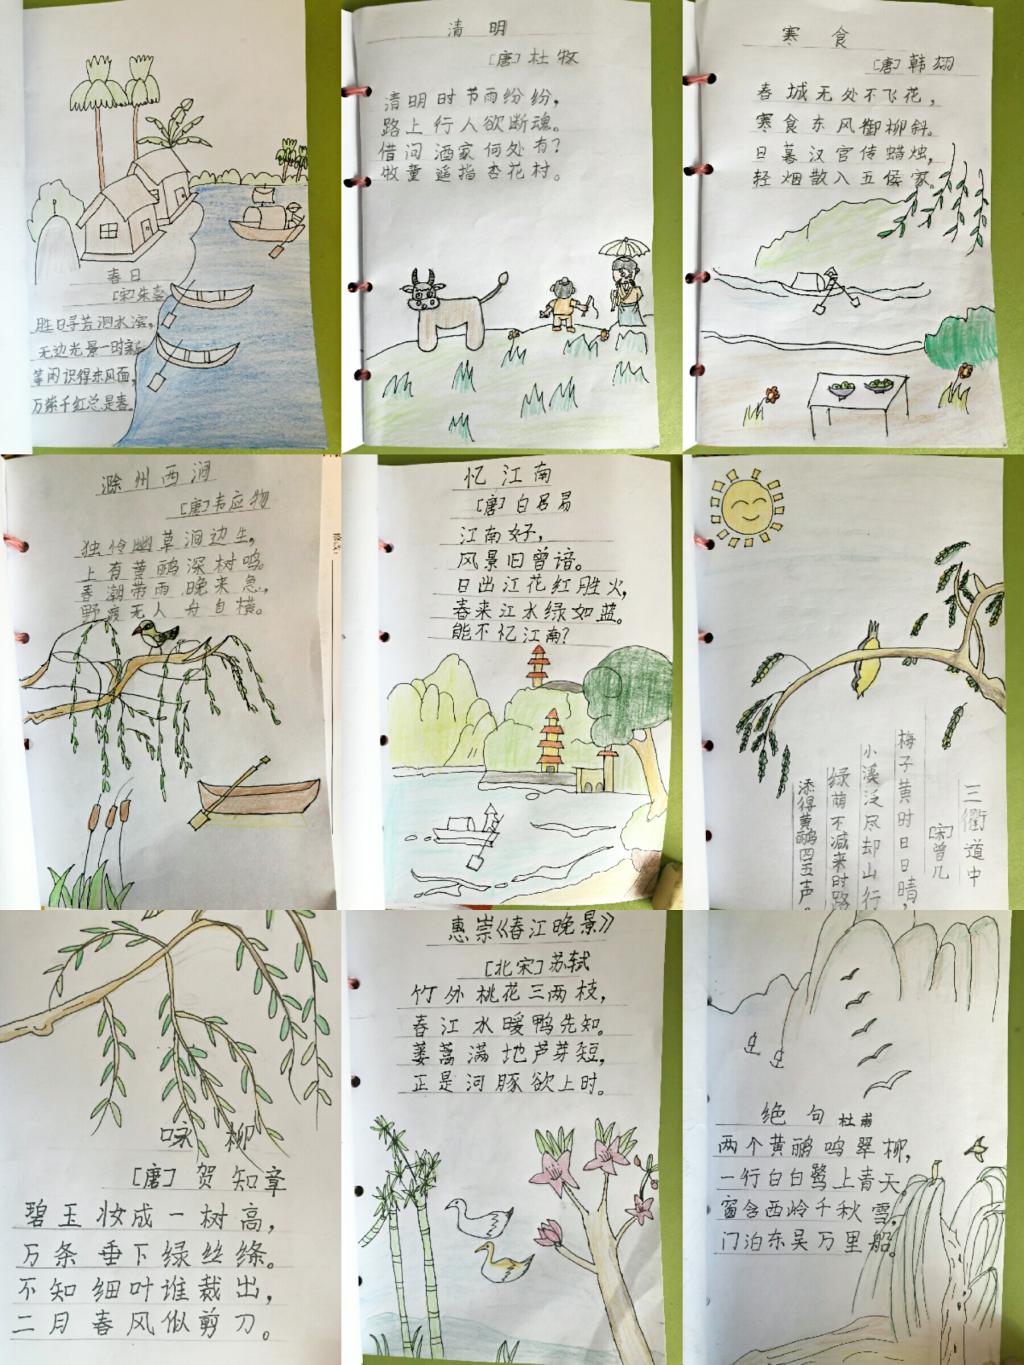 春日
[宋]朱熹
胜日寻芳泗水滨，
无边光景一时新
等闲识得东风面，
万紫千红总是春。
清明
[唐]杜牧
清明时节雨纷纷，
路上行人欲断魂。
借问酒家何处有？
牧童遥指杏花村。
寒食
[唐]韩翃
春城无处不飞花，
寒食东风御柳斜。
日暮汉宫传蜡烛，
轻烟散入五侯家。
滁州西涧
[唐]韦应物
独怜幽草涧边生，
上有黄鹂深树鸣。
春潮带雨晚来急，
野渡无人舟自横。
忆江南
[唐]白居易
江南好，
风景旧曾谙。
日出江花红胜火，
春来江水绿如蓝。
能不忆江南？
三衢道中
[宋]曾几
梅子黄时日日晴，
小溪泛尽却山行
绿荫不减来时路
添得黄鹂四五声。
咏柳
[唐]贺知章
碧玉妆成一树高，
万条垂下绿丝绦。
不知细叶谁裁出，
二月春风似剪刀。
惠崇《春江晚景》
[北宋]苏轼
竹外桃花三两枝，
春江水暖鸭先知。
蒌蒿满地芦芽短，
正是河豚欲上时。
绝句 杜甫
两个黄鹂鸣翠柳，
一行白白鹭上青天
窗含西岭千秋雪，
门泊东吴万里船。